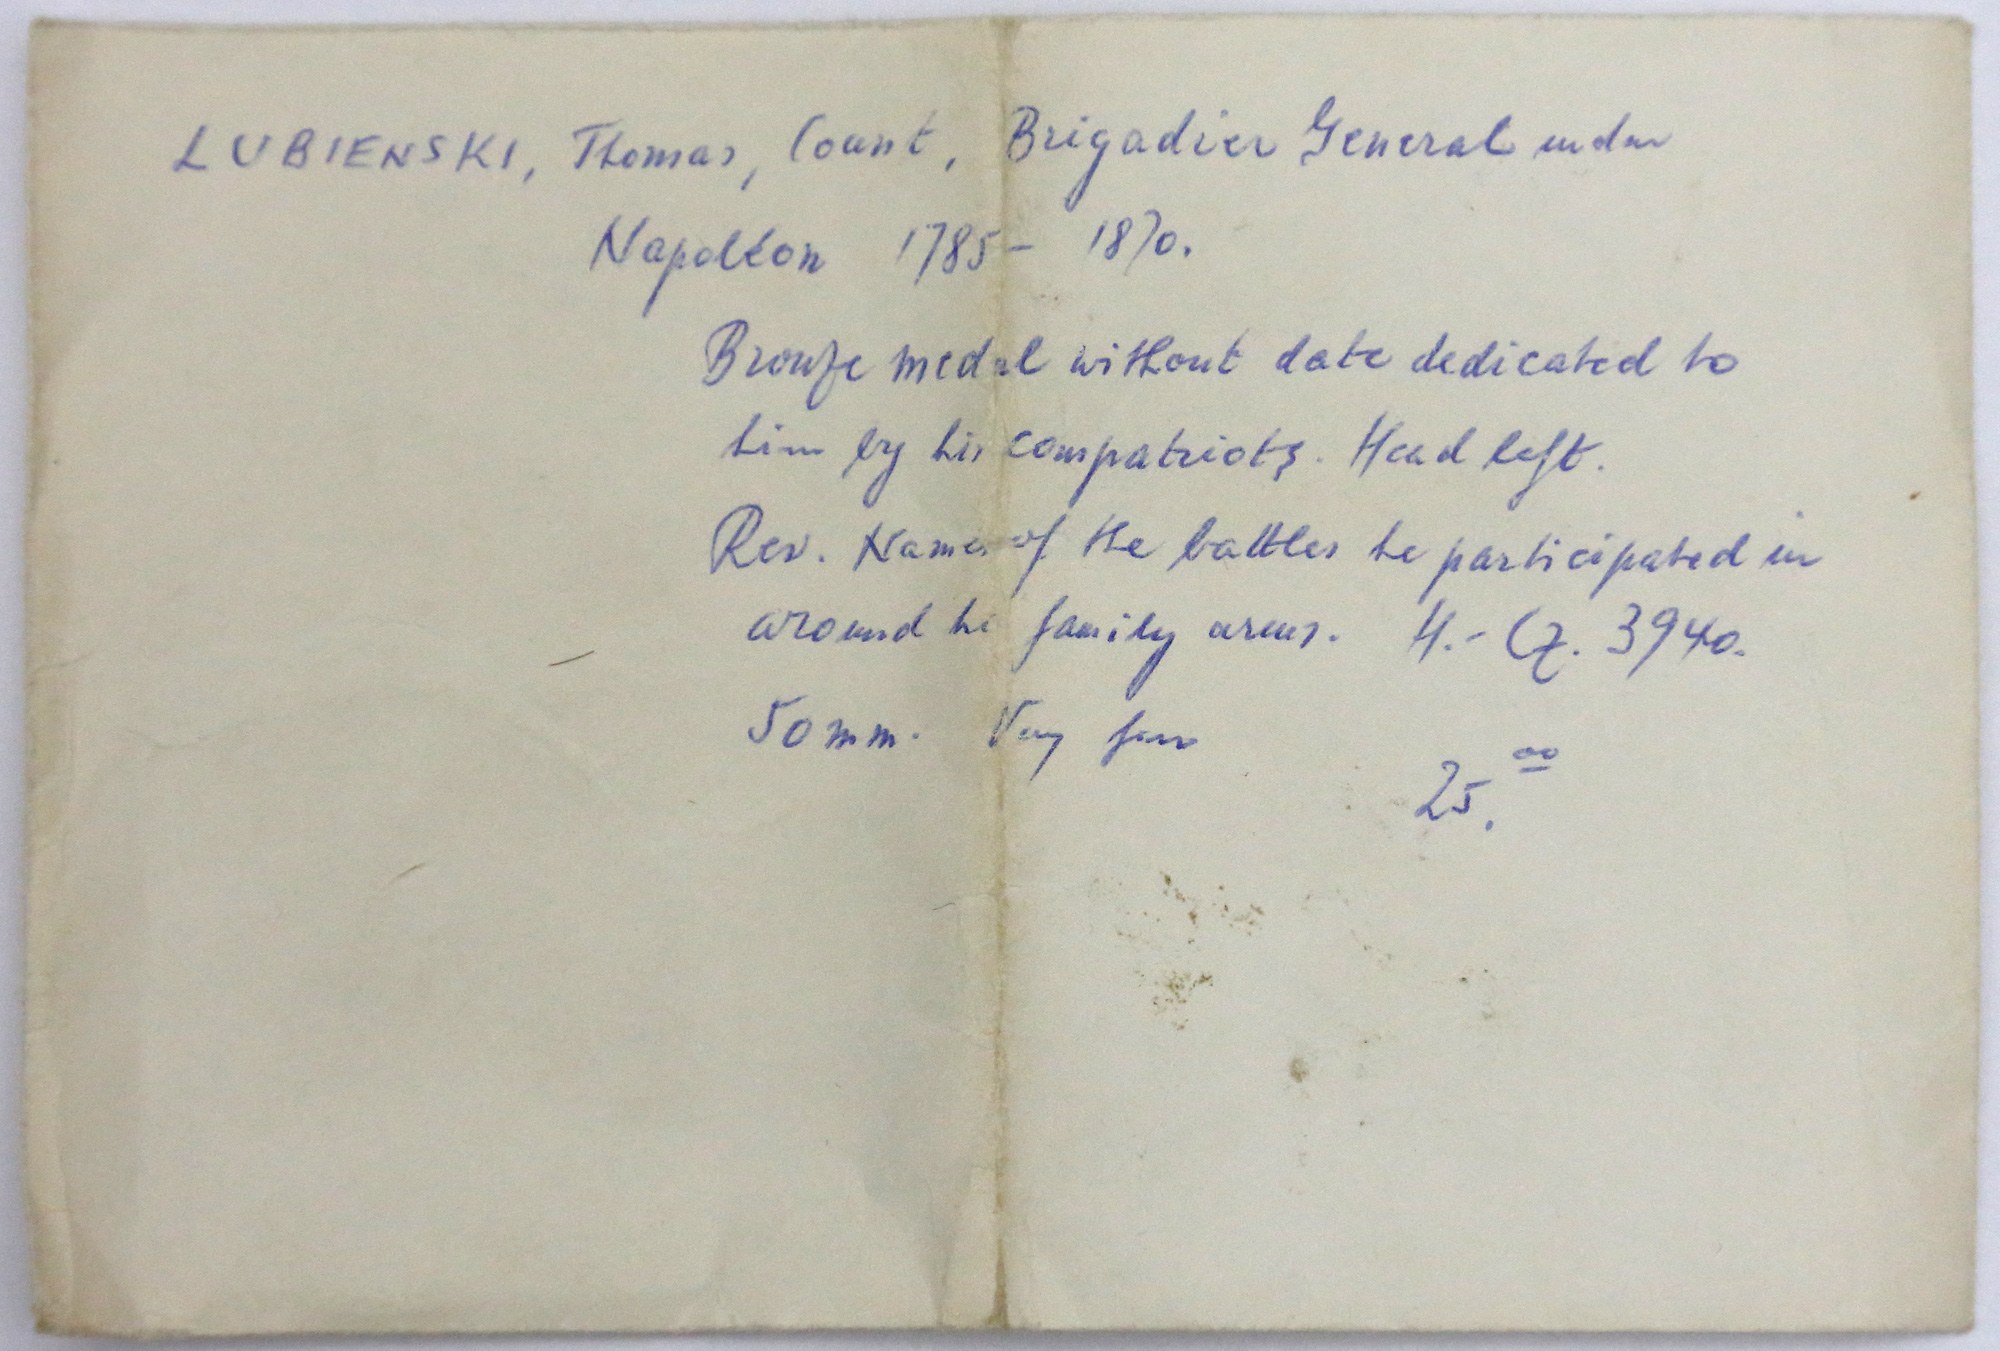 LUBIENSKI, Thomas, Count, Brigadier General under
Napoléon 1785 - 1870.
Bronze medal without date dedicated to
him by his compatriots. Head left.
Rev. Names of the battles he participated in
around his family arms. H.-Cz. 3940.
50 mm. Very fine
25.00